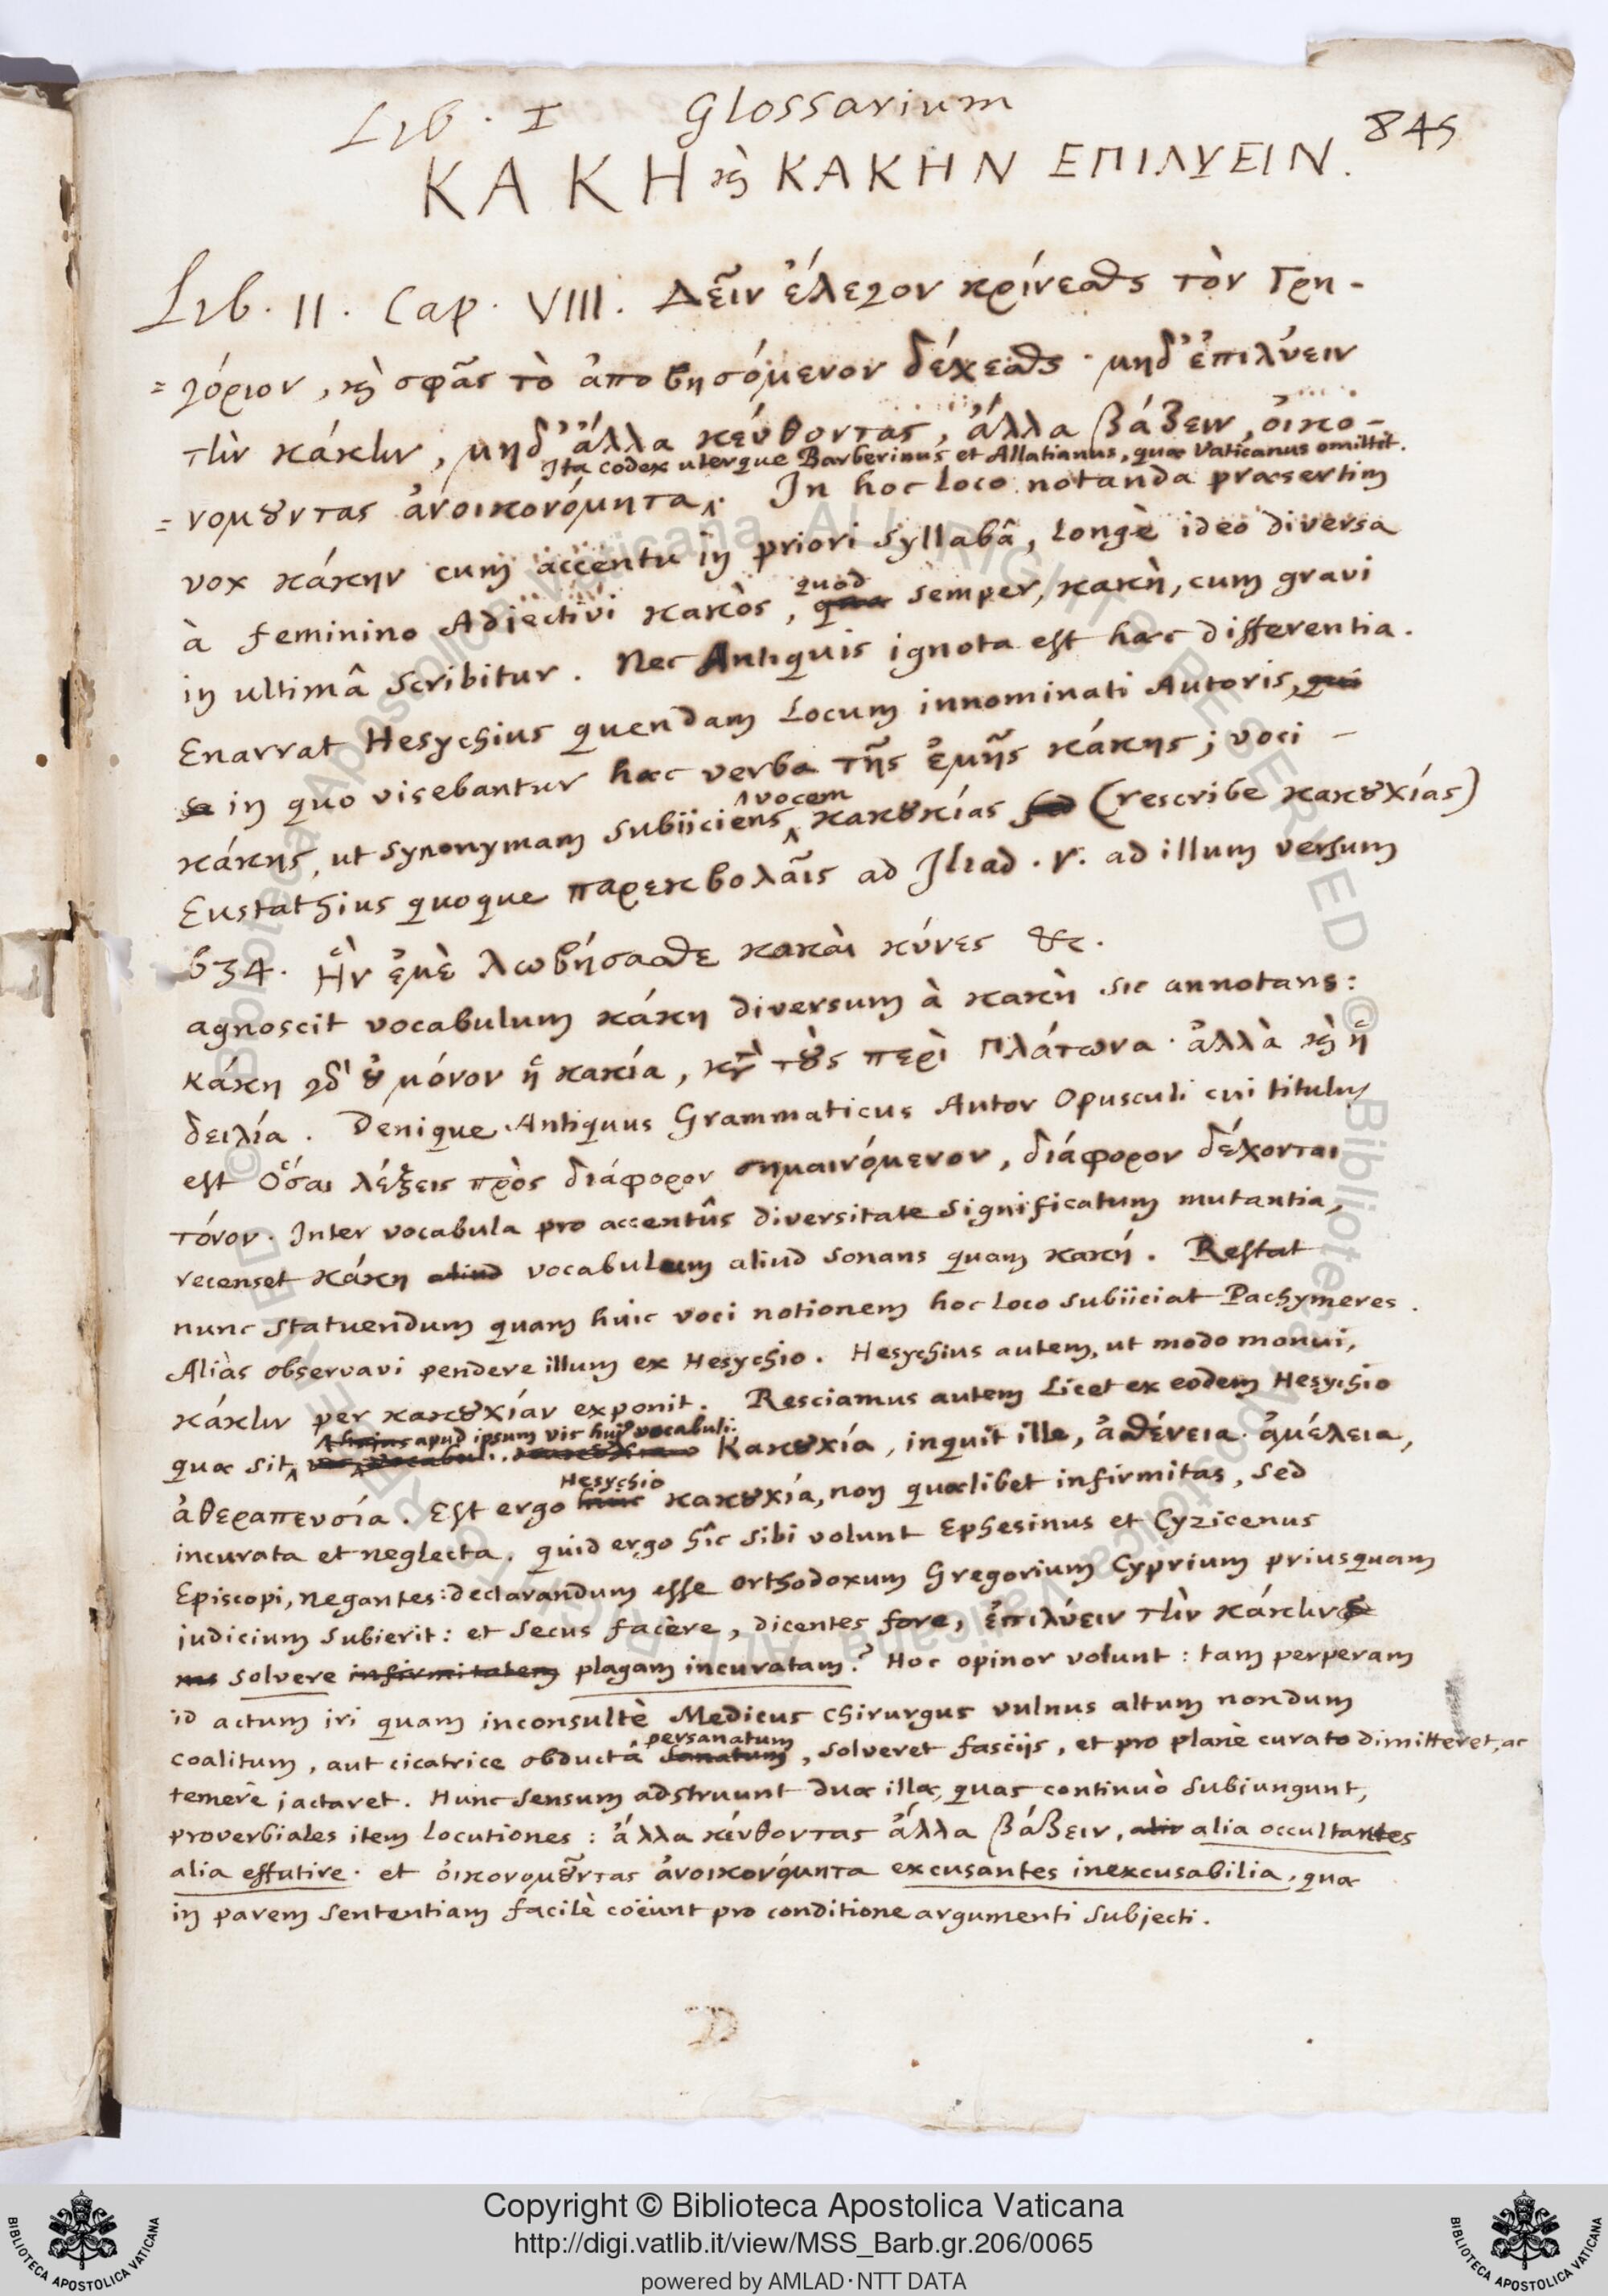 Lib. I Glossarium
845
ΚΑΚΗ κὴ ΚΑΚΗΝ ΕΠΙΛΥΕΙΝ.
Lib. II. Cap. VIII. Δεῖν ἔλεγον κρίνεσθαι τὸν Γρη-
=γόριον, καὶ σφᾶς τὸ ἀποβησόμενον δέχεσθαι· μηδ' ἐπιλύειν
τὴν κάκην, μηδ' ἄλλα κεύθοντας, ἄλλα βάζειν, οἰκο-
Ita codex uterque Barberinus et Allatianus, quæ Vaticanus omittit.
=νομοῦντας ἀνοικονόμητα. In hoc loco notanda præsertim
vox κάκην cum accentu in priori syllabâ, longè ideo diversa
quod
à feminino Adjectivi κακὸς, semper, κακὴ, cum gravi
in ultimâ scribitur. Nec Antiquis ignota est hæc differentia.
Enarrat Hesychius quendam Locum innominati Autoris, qui
in quo visebantur hæc verba τῆς ἐμῆς κάκης; voci
vocem
κάκης, ut synonymam subiiciens κακουκίας (rescribe κακουχίας)
Eustathius quoque παρεκβολαῖς ad Iliad. ν. ad illum versum
634. Ἣν ἐμὲ λωβήσασθε κακαὶ κύνες &c.
agnoscit vocabulum κάκη diversum à κακὴ sic annotans:
κάκη γὸ οὐ μόνον ἡ κακία, κτ̀ τοὺς περὶ Πλάτωνα· ἀλλὰ καὶ ἡ
δειλία. Denique Antiquus Grammaticus Autor Opusculi cui titulus
est Ὅσαι λέξεις πρὸς διάφορον σημαινόμενον, διάφορον δέχονται
τόνον. Inter vocabula pro accentûs diversitate significatum mutantia,
recenset κάκη aliud vocabulum aliud sonans quam κακή. Restat
nunc statuendum quam huic voci notionem hoc loco subiiciat Pachymeres.
Aliàs observavi pendere illum ex Hesychio. Hesychius autem, ut modo monui,
κάκην per κακουχίαν exponit. Resciamus autem Licet ex eodem Hesychio
apud ipsum vis hujus vocabuli.
quæ sit Κακουχία, inquit ille, ἀσθένεια· ἀμέλεια,
Hesychio
ἀθεραπευσία. Est ergo huic κακουχία, non quælibet infirmitas, sed
incurata et neglecta. quid ergo hîc sibi volunt Ephesinus et Cyzicenus
Episcopi, negantes: declarandum esse Orthodoxum Gregorium Cyprium priusquam
judicium subierit: et secus facère, dicentes fore, ἐπιλύειν τὴν κάκην
solvere infirmitatem plagam incuratam? Hoc opinor volunt: tam perperam
id actum iri quam inconsultè Medicus chirurgus vulnus altum nondum
persanatum
coalitum, aut cicatrice obductâ sanatum, solveret fasciis, et pro planè curato dimitteret, ac
temerè jactaret. Hunc sensum adstruunt duæ illæ, quas continuò subiungunt,
proverbiales item locutiones: ἄλλα κεύθοντας ἄλλα βάζειν, alia occultantes
alia effutire. et οἰκονομοῦντας ἀνοικονόμητα excusantes inexcusabilia, quæ
in parem sententiam facilè coëunt pro conditione argumenti subjecti.
Copyright © Biblioteca Apostolica Vaticana
http://digi.vatlib.it/view/MSS_Barb.gr.206/0065
powered by AMLAD·NTT DATA
BIBLIOTECA APOSTOLICA VATICANA
BIBLIOTECA APOSTOLICA VATICANA